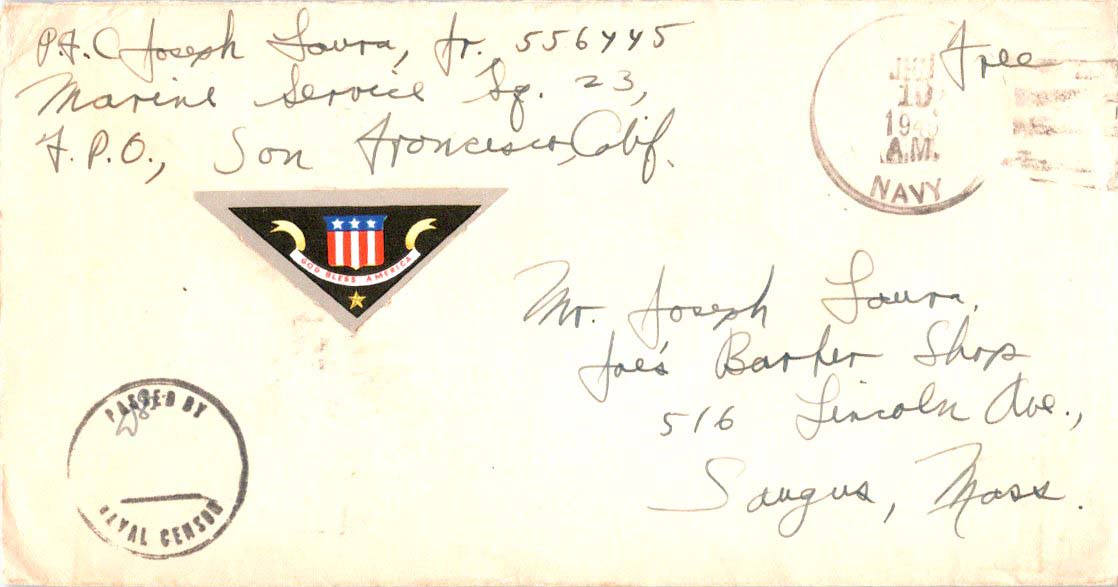 P.F.C. Joseph Laura, Jr. 556445
Marine Service Sq. 23,
F.P.O., San Francisco, Calif.
Free
10
A.M.
NAVY
GOD BLESS AMERICA
Mr. Joseph Laura,
Joe's Barber Shop
516 Lincoln Ave.,
Saugus, Mass.
PASSED BY
NAVAL CENSOR